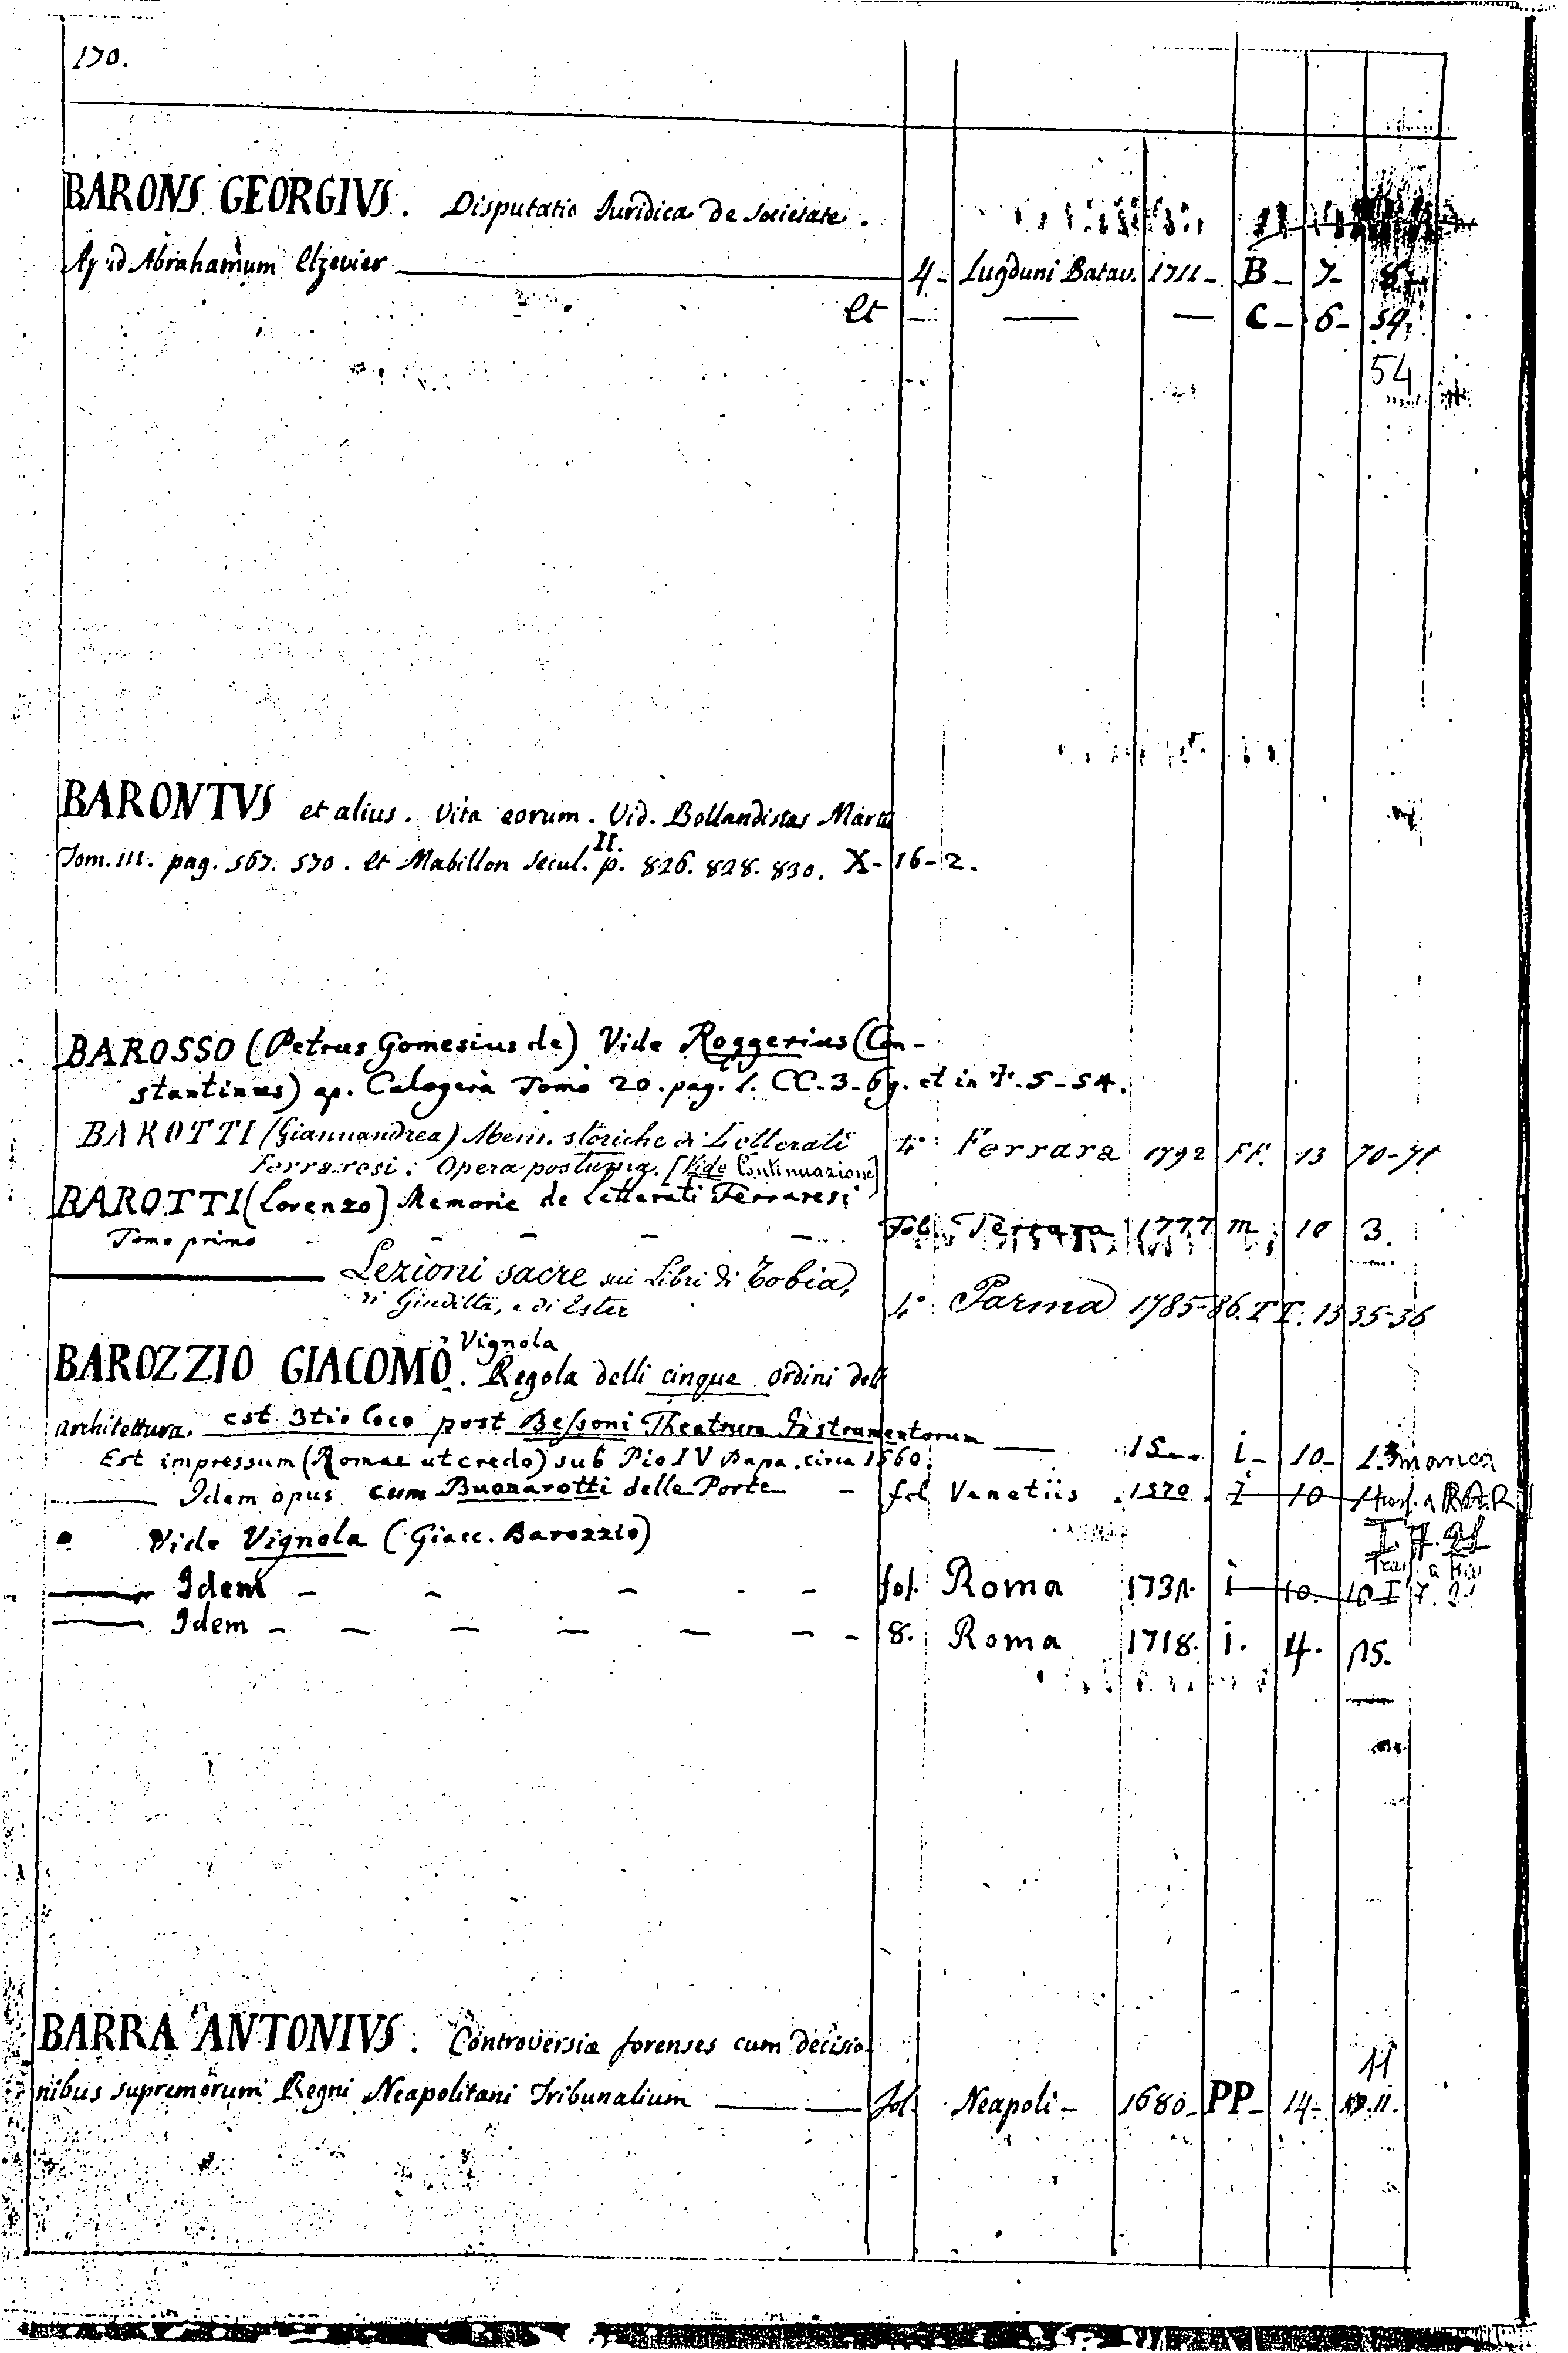 170.
BARONS GEORGIVS. Disputatio Iuridica de Societate.
Apud Abrahamum Elzevier 4- Lugduni Batav. 1711- B- 7-
et — — — C- 6- 54.
54
BARONTVS et alius. Vita eorum. Vid. Bollandistas Martii
II.
Tom. III. pag. 567. 570. et Mabillon Secul. p. 826. 828. 830. X-16-2.
BAROSSO (Petrus Gomesius de) Vide Roggerius (Con-
stantinus) ap. Calogerà Tomo 20. pag. 1. CC-3-69. et in F-5-54.
BAROTTI (Giannandrea) Mem. storiche di Letterati 4° Ferrara 1792 FF. 13 70-71
Ferraresi: Opera postuma. [Vide Continuazione]
BAROTTI (Lorenzo) Memorie de Letterati Ferraresi
Tomo primo - - - - Fol. Ferrara 1777 m 10 3.
Lezioni sacre sui Libri di Tobia,
di Giuditta, e di Ester 4° Parma 1785-86. TT. 13 35-36
Vignola
BAROZZIO GIACOMO. Regola delli cinque ordini dell
architettura. est 3tio loco post Bessoni Theatrum Instrumentorum — 15 i- 10- manca
Est impressum (Romae ut credo) sub Pio IV Papa. circa 1560.
Idem opus cum Buonarotti delle Porte - fol Venetiis 1570 i 10
Vide Vignola (Giacc. Barozzio)
Idem - - - - - fol. Roma 1731. i 10. 10
Idem - - - - - - - 8. Roma 1718. i. 4. 15.
BARRA ANTONIVS. Controversiæ forenses cum decisio-
11
nibus supremorum Regni Neapolitani Tribunalium — fol. Neapoli- 1680- PP- 14- 11.